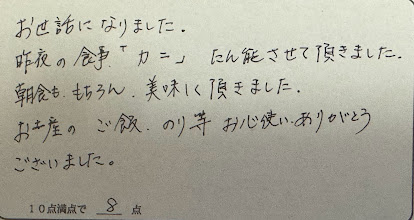 お世話になりました。
昨夜の食事「カニ」たん能させて頂きました。
朝食も、もちろん、美味しく頂きました。
お土産のご飯、のり等お心使い、ありがとう
ございました。
10点満点で 8 点